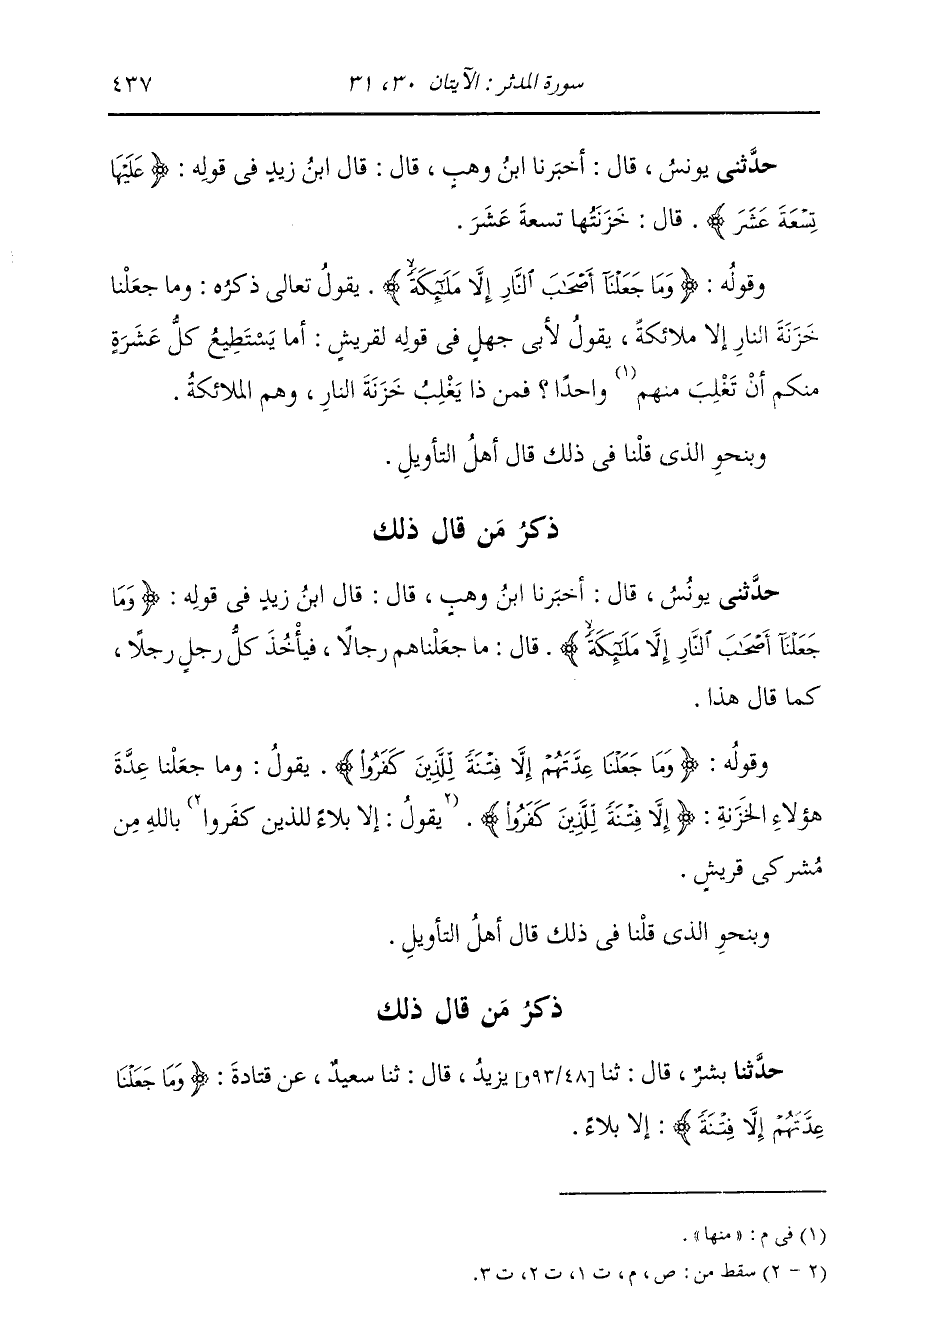 سورة المدثر : الآيتان ٣٠، ٣١ ٤٣٧
حدَّثنى يونسُ ، قال : أخبَرنا ابنُ وهبٍ ، قال : قال ابنُ زيدٍ فى قولِه : ﴿ عَلَيْهَا
تِسْعَةَ عَشَرَ ﴾ . قال : خَزَنَتُها تسعةَ عَشَرَ .
وقولُه : ﴿ وَمَا جَعَلْنَآ أَصْحَٰبَ ٱلنَّارِ إِلَّا مَلَٰٓئِكَةً ۙ ﴾ . يقولُ تعالى ذكرُه : وما جعَلْنا
خَزَنَةَ النارِ إلا ملائكةً ، يقولُ لأبى جهلٍ فى قولِه لقريشٍ : أما يَسْتَطِيعُ كلُّ عَشَرَةٍ
منكم أنْ تَغْلِبَ منهم (١) واحدًا ؟ فمن ذا يَغْلِبُ خَزَنَةَ النارِ ، وهم الملائكةُ .
وبنحوِ الذى قلْنا فى ذلك قال أهلُ التأويلِ .
ذكرُ مَن قال ذلك
حدَّثنى يونُسُ ، قال : أخبَرنا ابنُ وهبٍ ، قال : قال ابنُ زيدٍ فى قولِه : ﴿ وَمَا
جَعَلْنَآ أَصْحَٰبَ ٱلنَّارِ إِلَّا مَلَٰٓئِكَةً ۙ ﴾ . قال : ما جعَلْناهم رجالًا ، فيأْخُذَ كلُّ رجلٍ رجلًا ،
كما قال هذا .
وقولُه : ﴿ وَمَا جَعَلْنَا عِدَّتَهُمْ إِلَّا فِتْنَةً لِّلَّذِينَ كَفَرُوا۟ ﴾ . يقولُ : وما جعَلْنا عِدَّةَ
هؤلاءِ الخَزَنةِ : ﴿ إِلَّا فِتْنَةً لِّلَّذِينَ كَفَرُوا۟ ﴾ . (٢ يقولُ : إلا بلاءً للذين كفَروا ٢) باللهِ مِن
مُشركى قريشٍ .
وبنحوِ الذى قلْنا فى ذلك قال أهلُ التأويلِ .
ذكرُ مَن قال ذلك
حدَّثنا بشرٌ ، قال : ثنا [٩٣/٤٨و] يزيدُ ، قال : ثنا سعيدٌ ، عن قتادةَ : ﴿ وَمَا جَعَلْنَا
عِدَّتَهُمْ إِلَّا فِتْنَةً ﴾ : إلا بلاءً .
(١) فى م : « منها » .
(٢ - ٢) سقط من : ص ، م ، ت ١، ت ٢، ت ٣.